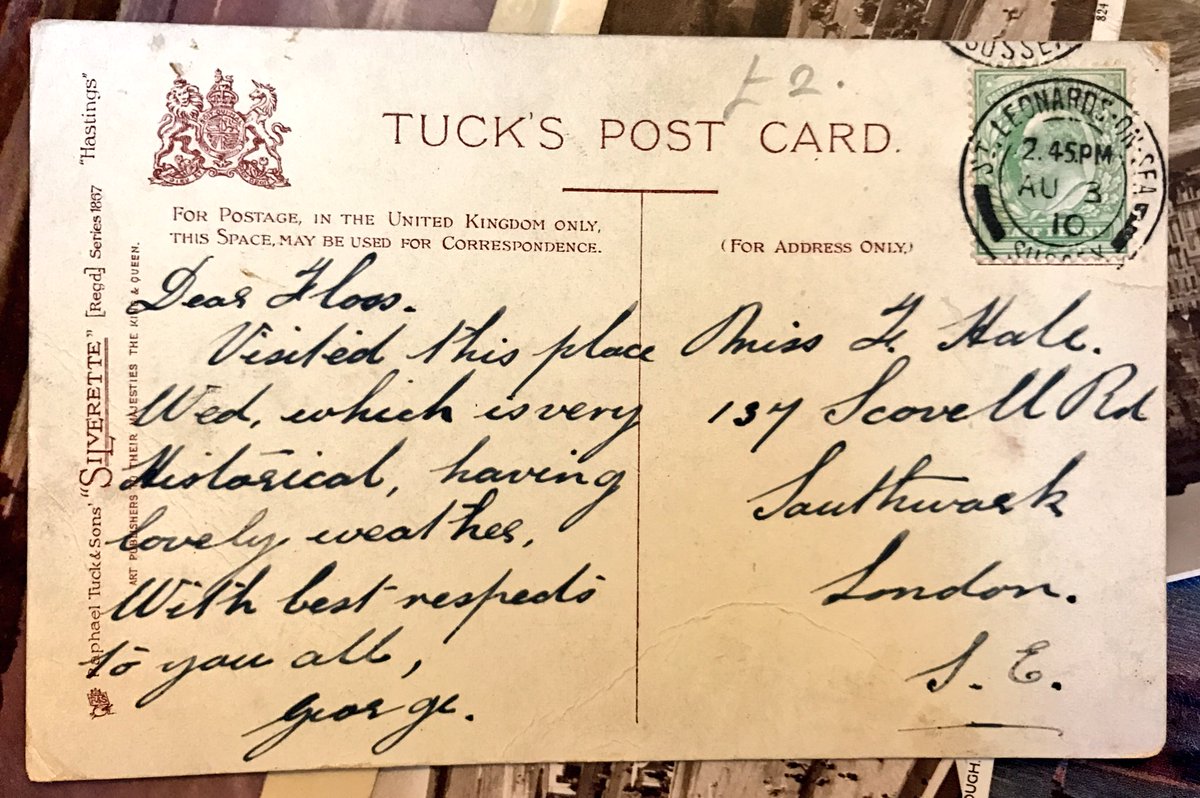 £2.
TUCK'S POST CARD.
FOR POSTAGE, IN THE UNITED KINGDOM ONLY,
THIS SPACE, MAY BE USED FOR CORRESPONDENCE.
(FOR ADDRESS ONLY.)
SUSSEX
ST LEONARDS-ON-SEA
2.45 PM
AU 3
10
SUSSEX
Dear Floss.
Visited this place
Wed, which is very
Historical, having
lovely weather,
With best respects
to you all,
George.
Miss F. Hale.
137 Scovell Rd
Southwark
London.
S. E.
Raphael Tuck & Sons' "SILVERETTE" [Regd] Series 1867 "Hastings"
ART PUBLISHERS THEIR MAJESTIES THE KING & QUEEN.
824
OUGH.